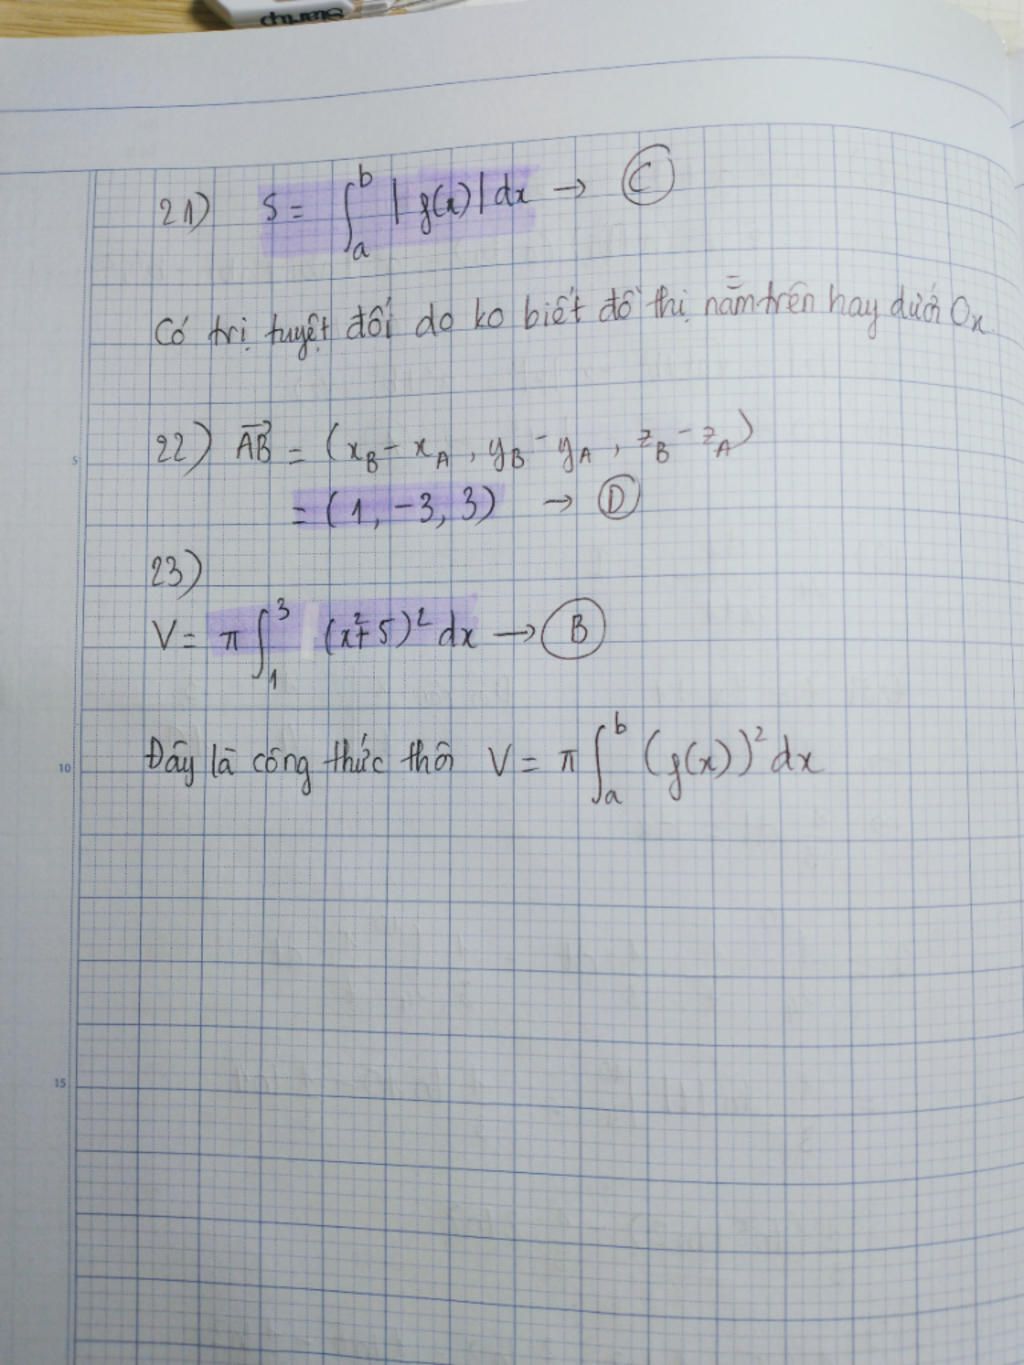 21) S = ∫_a^b |f(x)| dx → C
Có trị tuyệt đối do ko biết đồ thị nằm trên hay dưới Ox
22) \overrightarrow{AB} = (x_B - x_A, y_B - y_A, z_B - z_A)
5
= (1, -3, 3) → D
23)
V = π ∫_1^3 (x²+5)² dx → B
Đây là công thức thôi V = π ∫_a^b (f(x))² dx
10
15